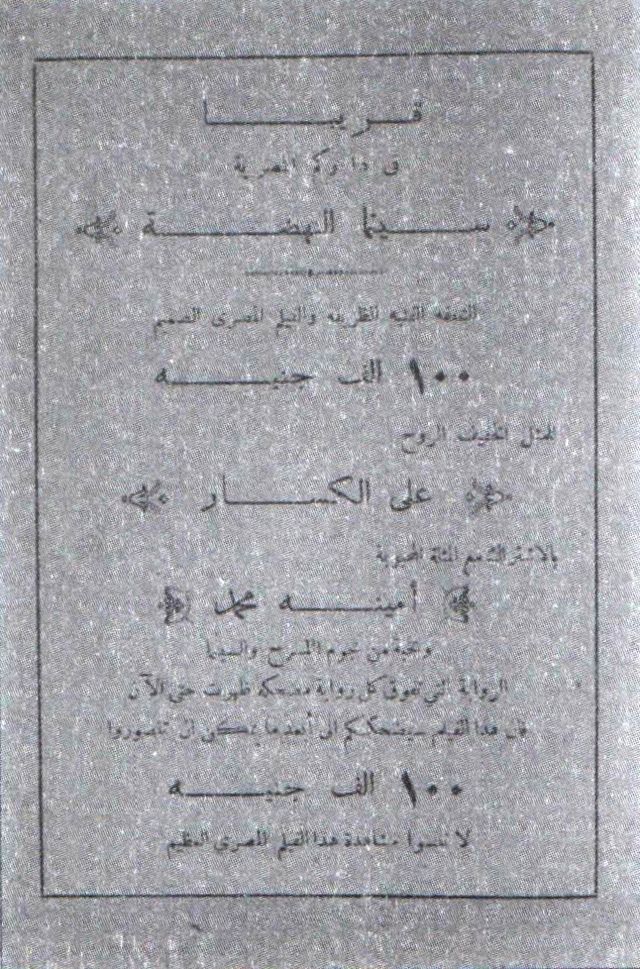 قريبا
في داركم المصرية
سينما النهضة
التحفة الفنية الظريفة والفيلم المصرى الصميم
١٠٠ الف جنيه
للممثل الخفيف الروح
على الكسار
بالاشتراك مع الممثلة المحبوبة
أمينه محمد
ونخبة من نجوم المسرح والسينما
الرواية التي تفوق كل رواية مضحكة ظهرت حتى الآن
فان هذا الفيلم سيضحككم الى أبعد ما يمكن ان تتصوروا
١٠٠ الف جنيه
لا تنسوا مشاهدة هذا الفيلم المصرى العظيم